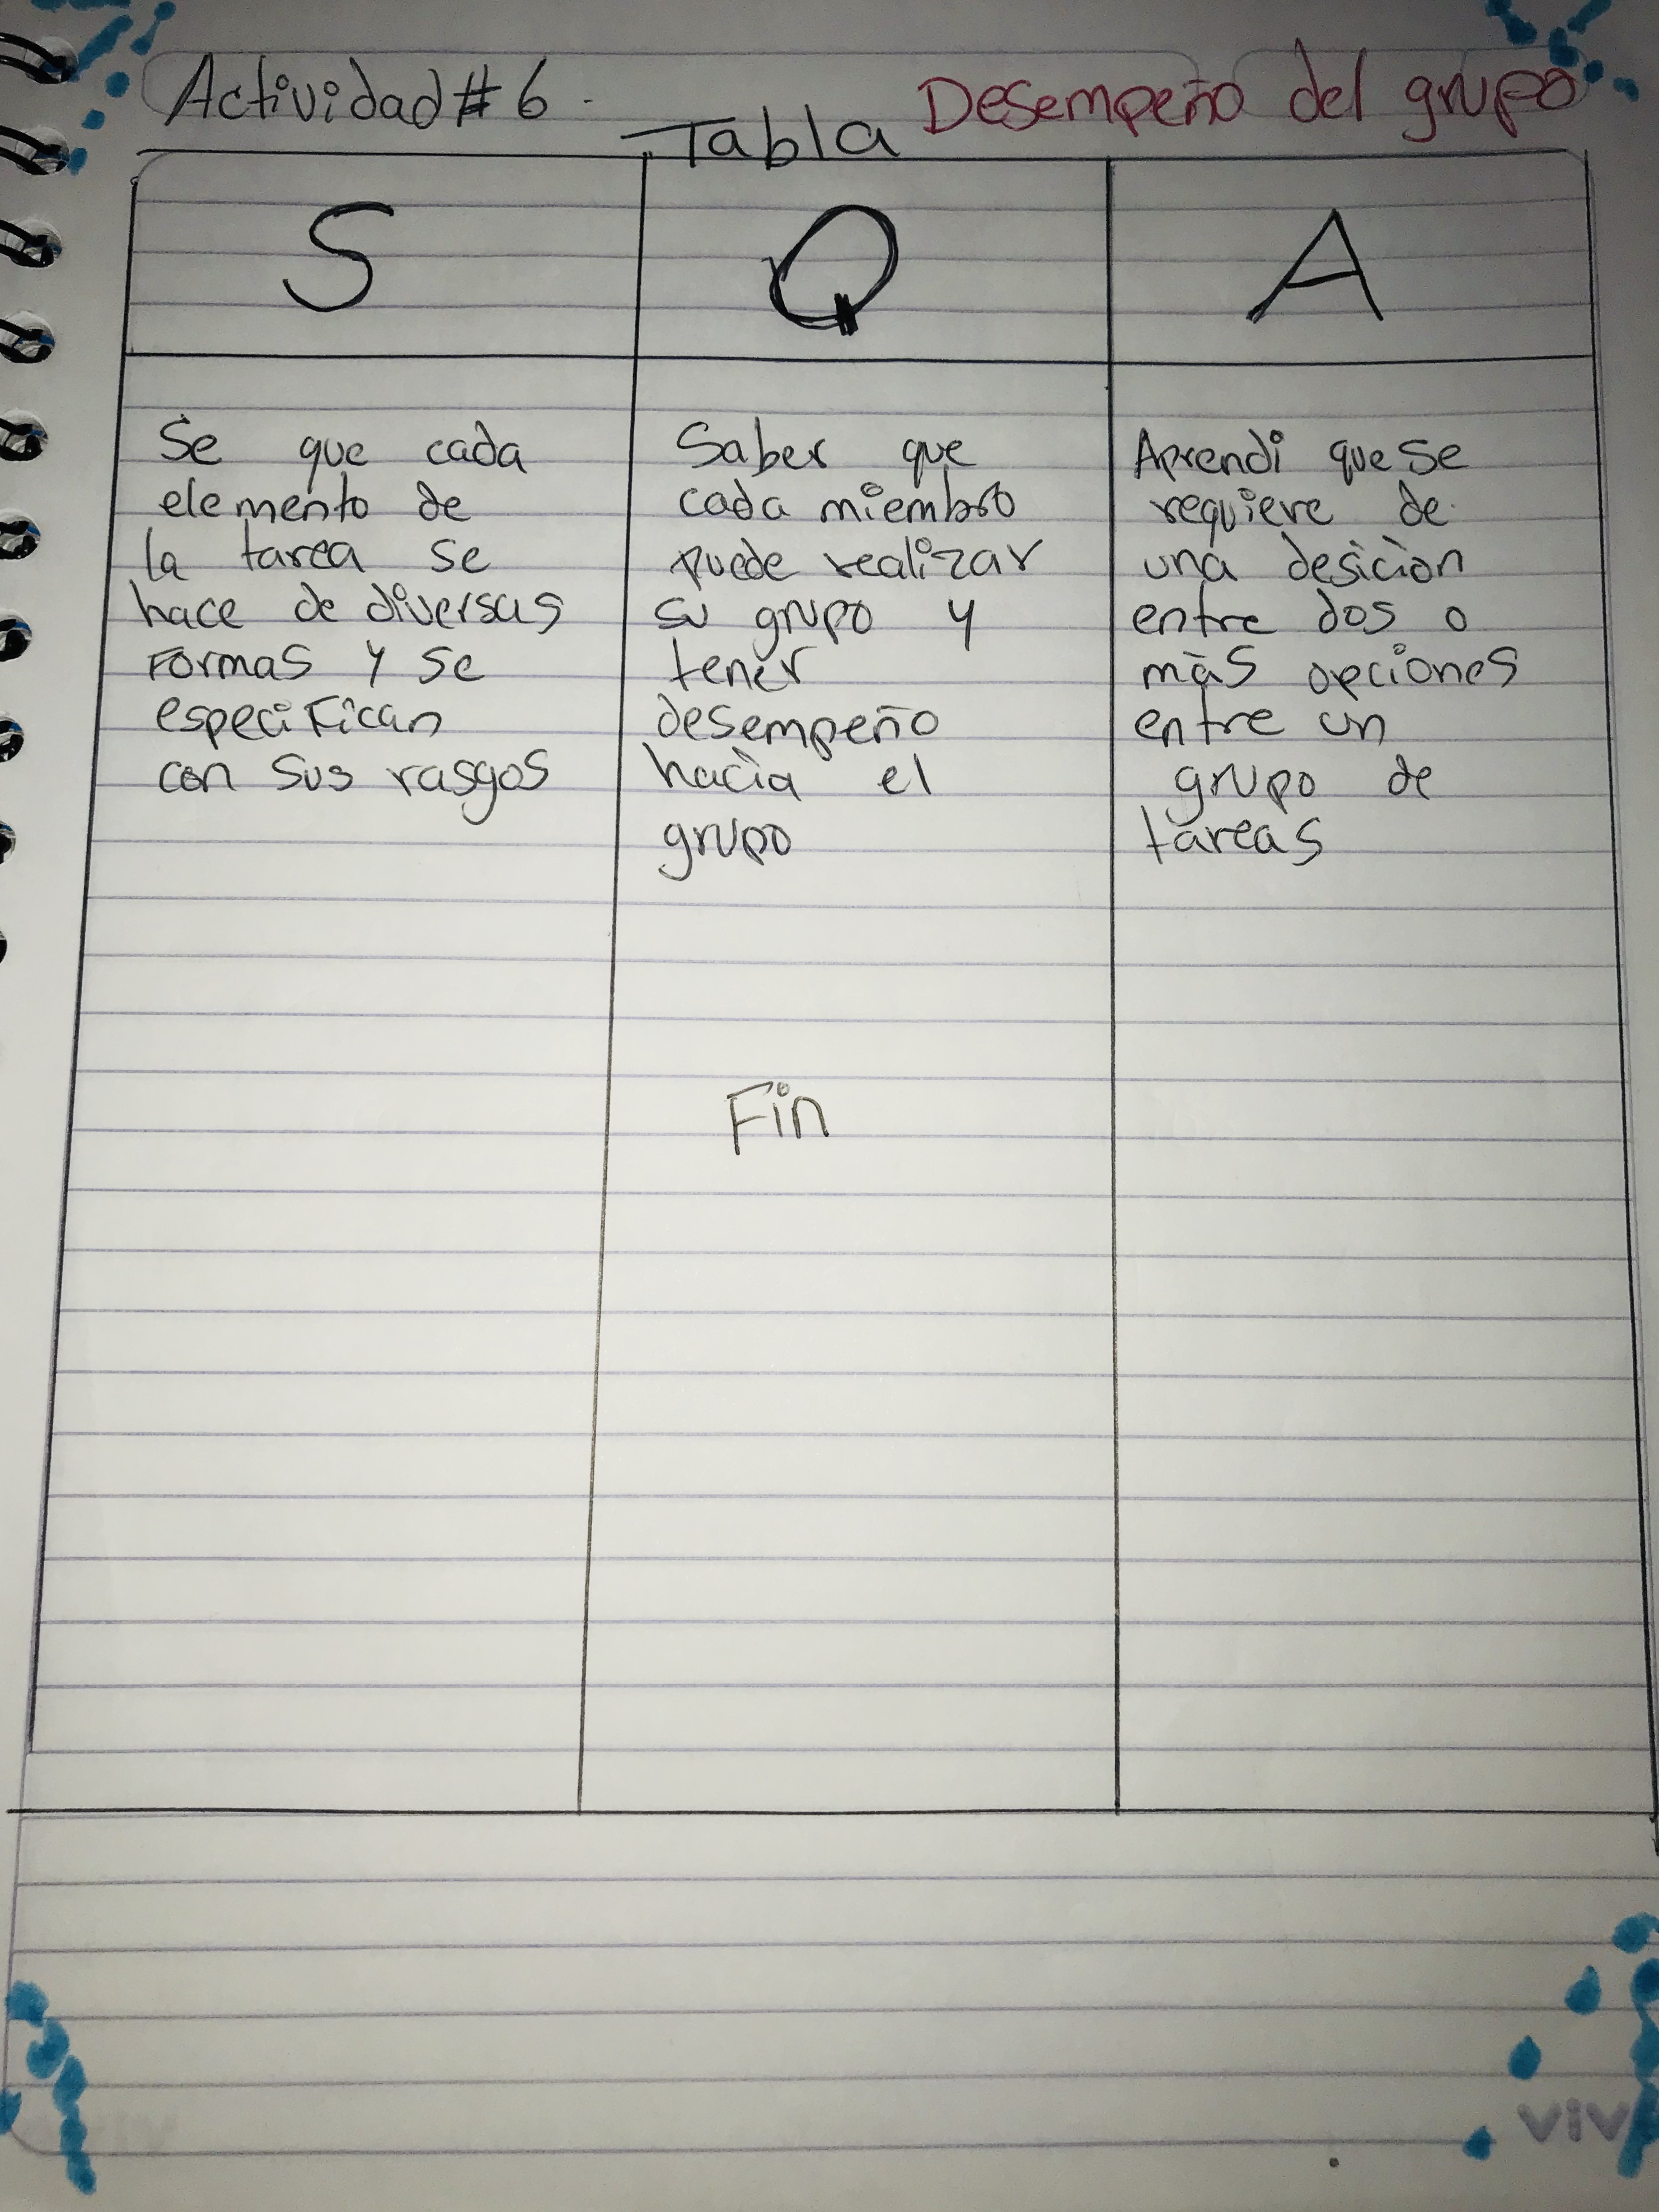 Actividad #6.
Desempeño del grupo
Tabla
S
Q
A
Se que cada
elemento de
la tarea se
hace de diversas
Formas y se
especifican
con sus rasgos
Saber que
cada miembro
puede realizar
su grupo y
tener
desempeño
hacia el
grupo
Aprendi que se
requiere de
una desiciòn
entre dos o
màs opciones
entre un
grupo de
tareas
Fin